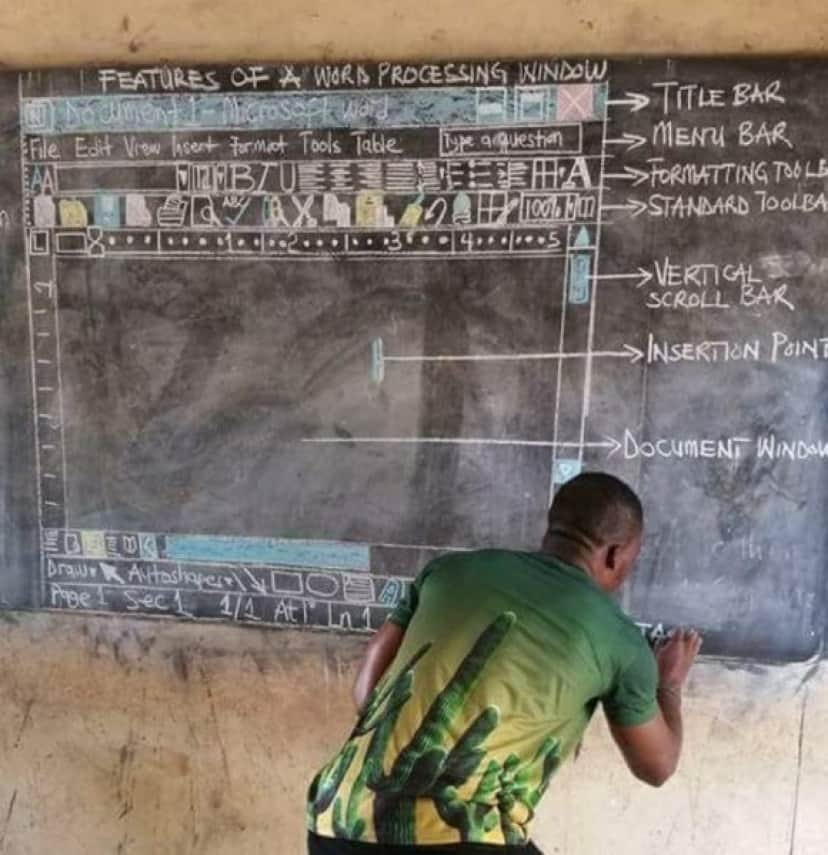 FEATURES OF A WORD PROCESSING WINDOW
Document 1 - Microsoft Word
TITLE BAR
File Edit View Insert Format Tools Table
Type a question
MENU BAR
AA
12
B I U
A
FORMATTING TOOLB
100%
STANDARD TOOLBA
1 2 3 4 5
VERTICAL
SCROLL BAR
INSERTION POINT
DOCUMENT WINDOW
Draw Autoshapes
A
Page 1 Sec 1 1/1 At 1" Ln 1
TA